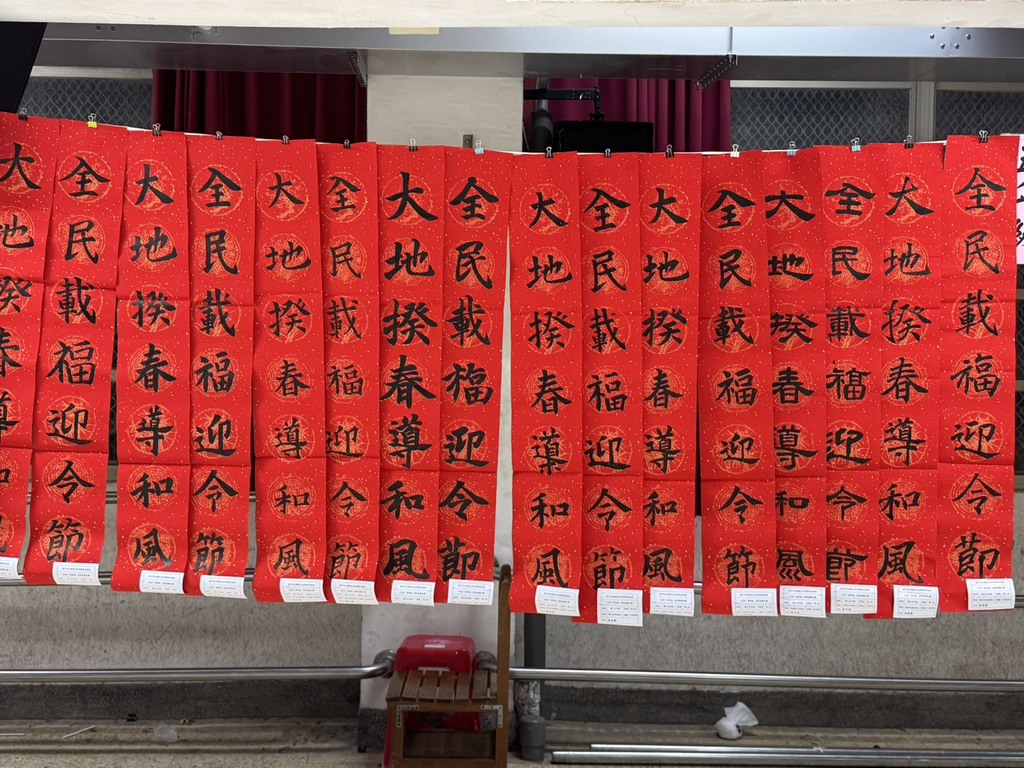 全民載福迎令節
大地揆春導和風
全民載福迎令節
大地揆春導和風
全民載福迎令節
大地揆春導和風
全民載福迎令節
大地揆春導和風
全民載福迎令節
大地揆春導和風
全民載福迎令節
大地揆春導和風
全民載福迎令節
大地揆春導和風
全民載福迎令節
大地揆春導和